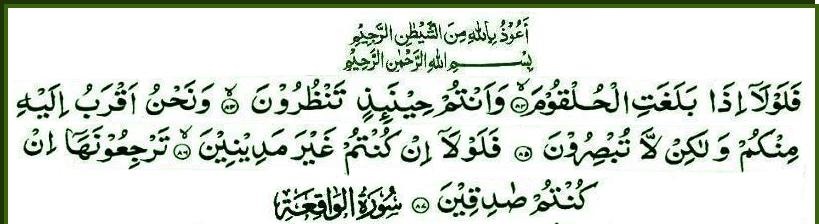 اَعُوْذُ بِاللهِ مِنَ الشَّيْطٰنِ الرَّجِيْمِ
بِسْمِ اللهِ الرَّحْمٰنِ الرَّحِيْمِ
فَلَوْلَاۤ اِذَا بَلَغَتِ الْحُلْقُوْمَ ﴿۸۳﴾ وَاَنْتُمْ حِيْنَىِٕذٍ تَنْظُرُوْنَ ﴿۸۴﴾ وَنَحْنُ اَقْرَبُ اِلَيْهِ
مِنْكُمْ وَلٰكِنْ لَّا تُبْصِرُوْنَ ﴿۸۵﴾ فَلَوْلَاۤ اِنْ كُنْتُمْ غَيْرَ مَدِيْنِيْنَ ﴿۸۶﴾ تَرْجِعُوْنَهَاۤ اِنْ
كُنْتُمْ صٰدِقِيْنَ ﴿۸۷﴾ سُوْرَةُ الْوَاقِعَة